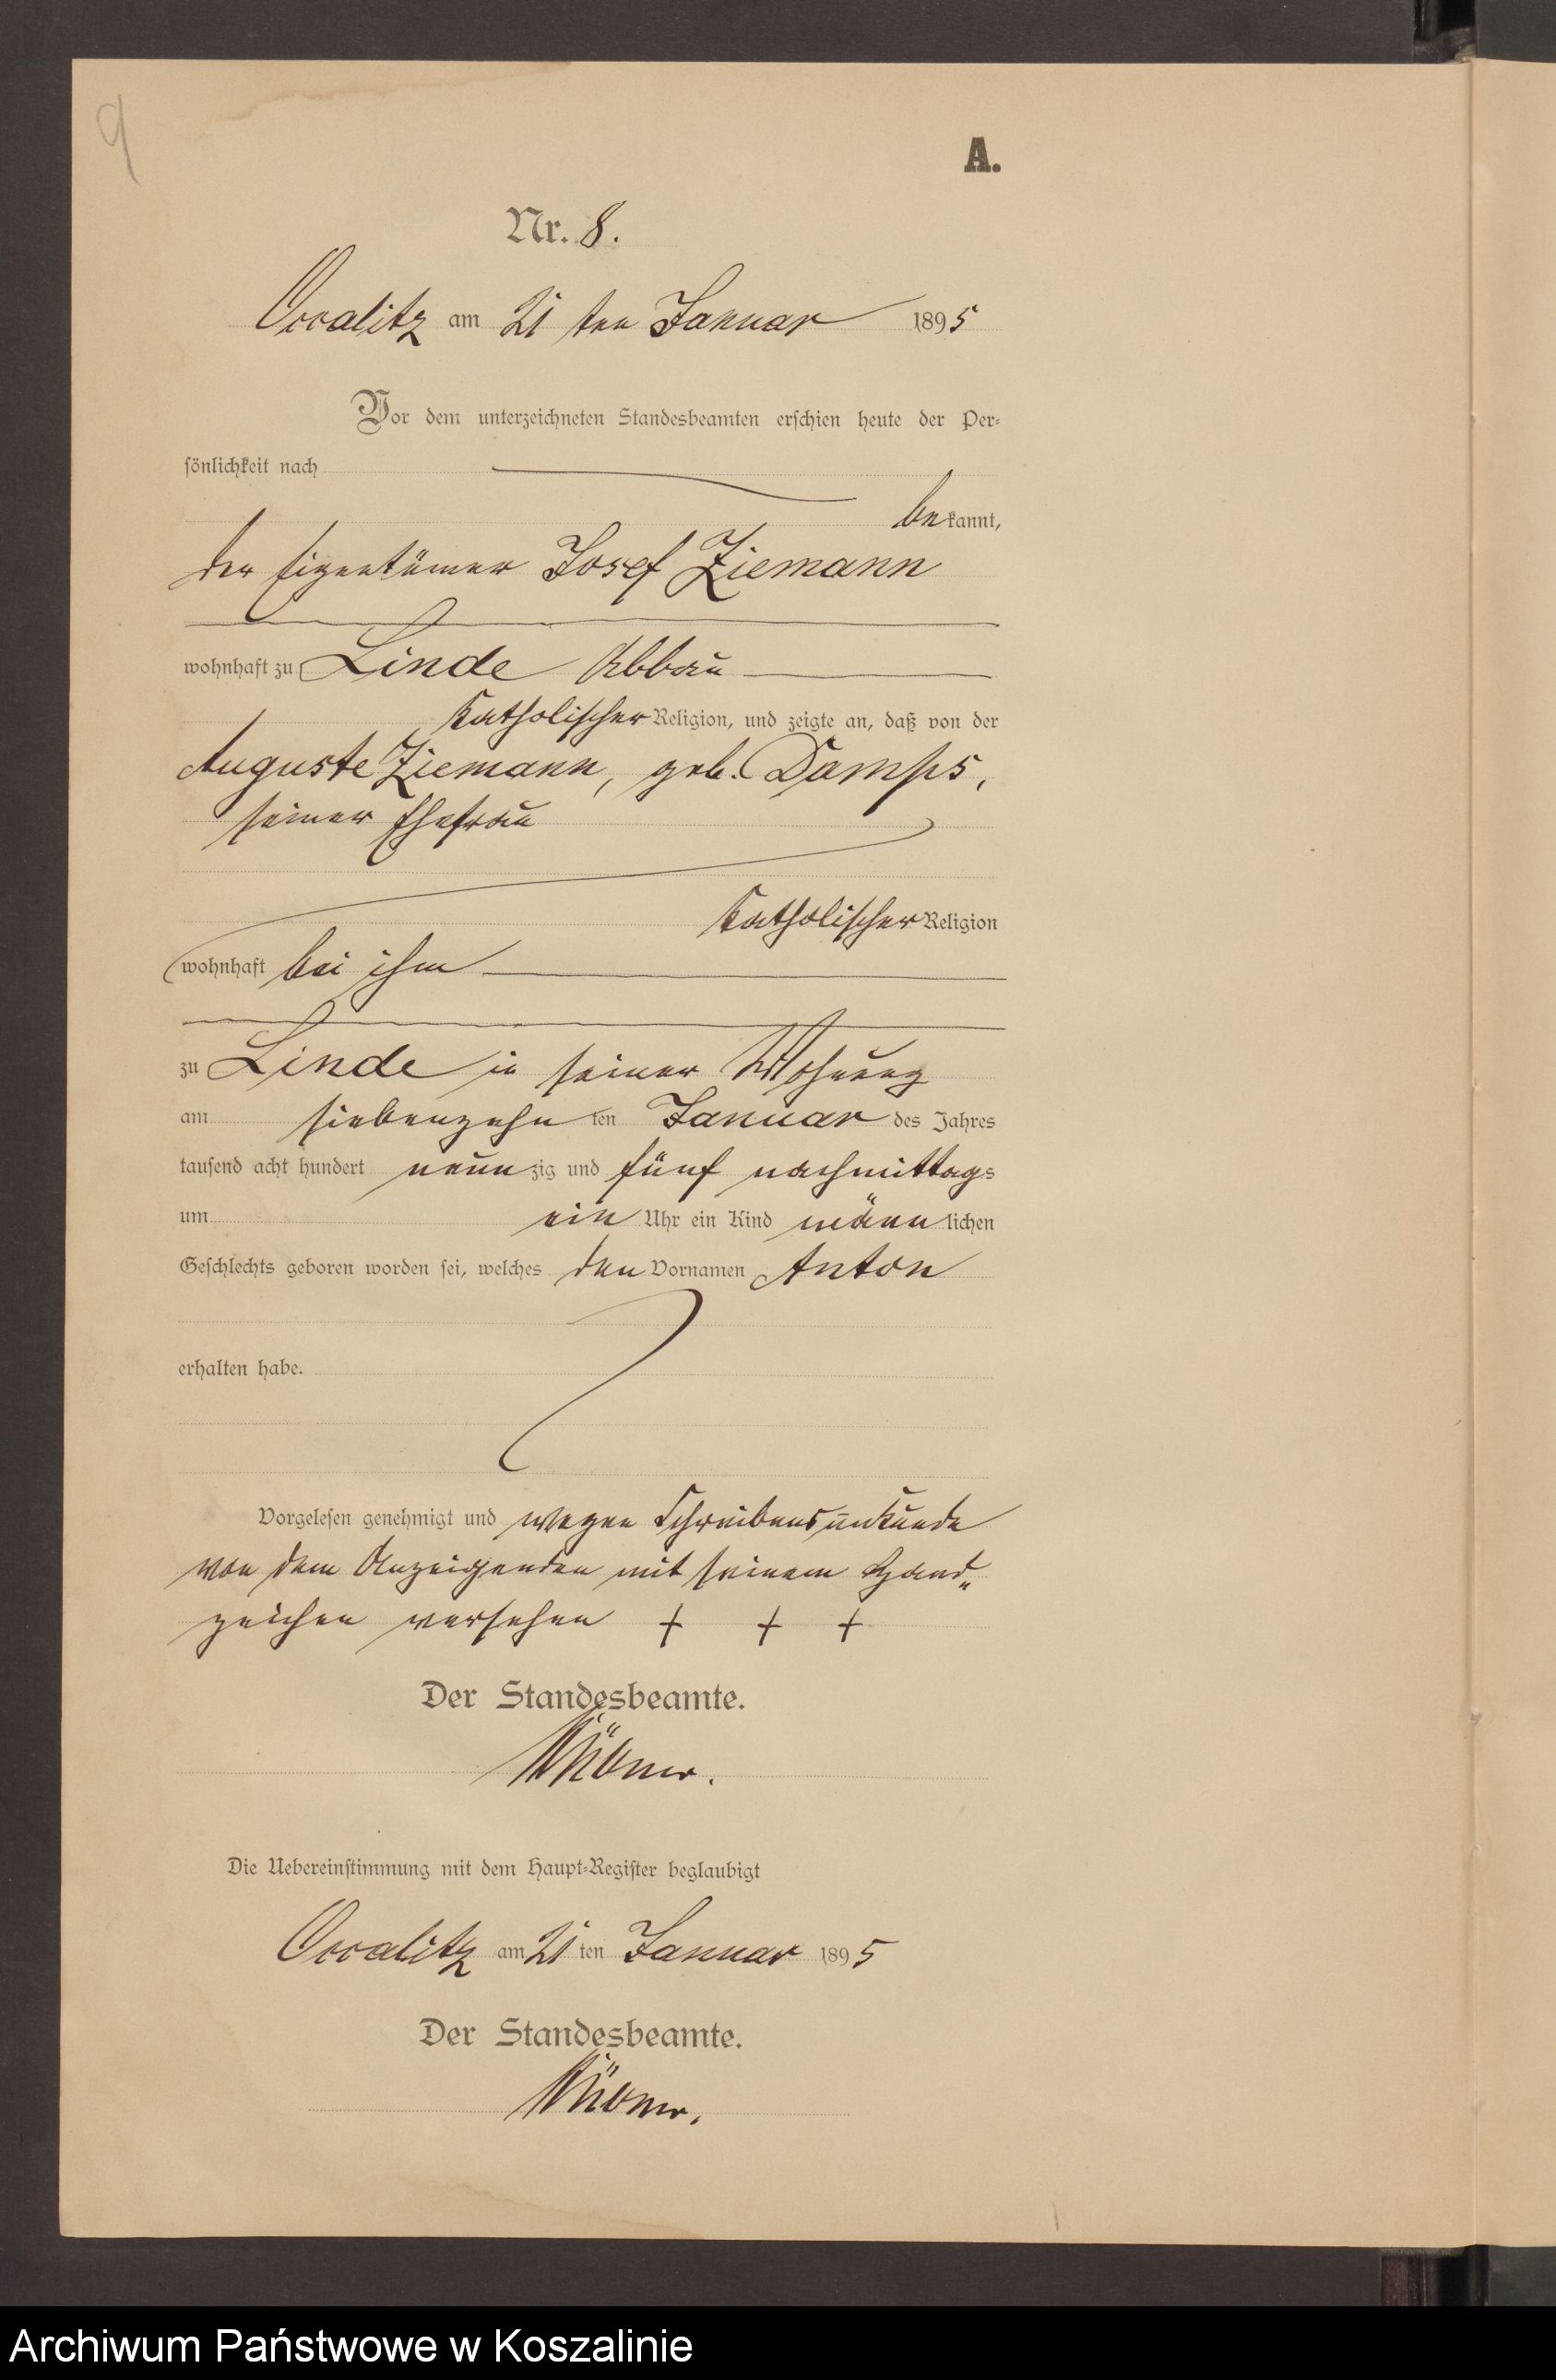 9
A.
Nr. 8.
Occalitz am 21 ten Januar 1895
Vor dem unterzeichneten Standesbeamten erschien heute der Per-
sönlichkeit nach
bekannt,
der Eigentümer Josef Ziemann
wohnhaft zu Linde Abbau
katholischer Religion, und zeigte an, daß von der
Auguste Ziemann, geb. Damps,
seiner Ehefrau
katholischer Religion
wohnhaft bei ihm
zu Linde in seiner Wohnung
am siebenzehn ten Januar des Jahres
tausend acht hundert neunzig und fünf nachmittags
um ein Uhr ein Kind männlichen
Geschlechts geboren worden sei, welches den Vornamen Anton
erhalten habe.
Vorgelesen genehmigt und wegen Schreibensunkunde
von dem Anzeigenden mit seinem Hand„
zeichen versehen + + +
Der Standesbeamte.
Die Uebereinstimmung mit dem Haupt-Register beglaubigt
Occalitz am 21 ten Januar 1895
Der Standesbeamte.
Archiwum Państwowe w Koszalinie